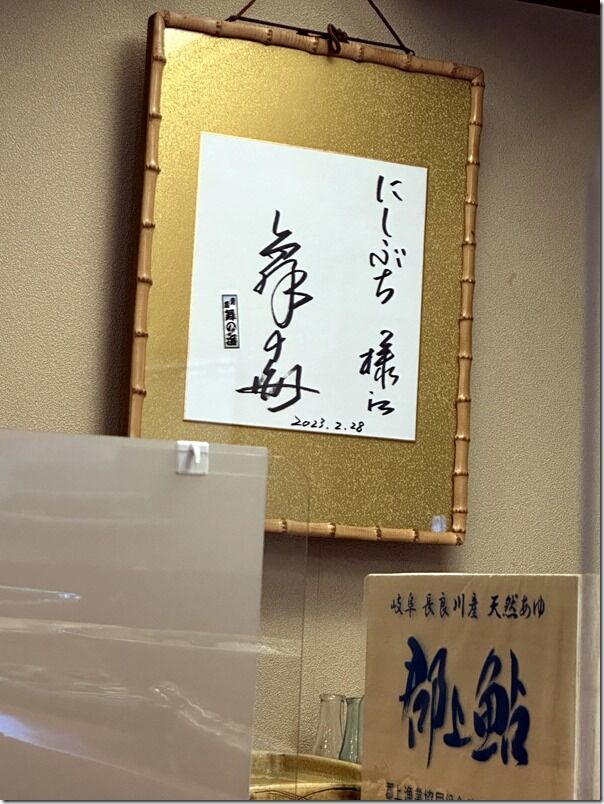 にしぶち 様江
舞の海
2023.2.28
岐阜 長良川産 天然あゆ
郡上鮎
郡上漁業協同組合